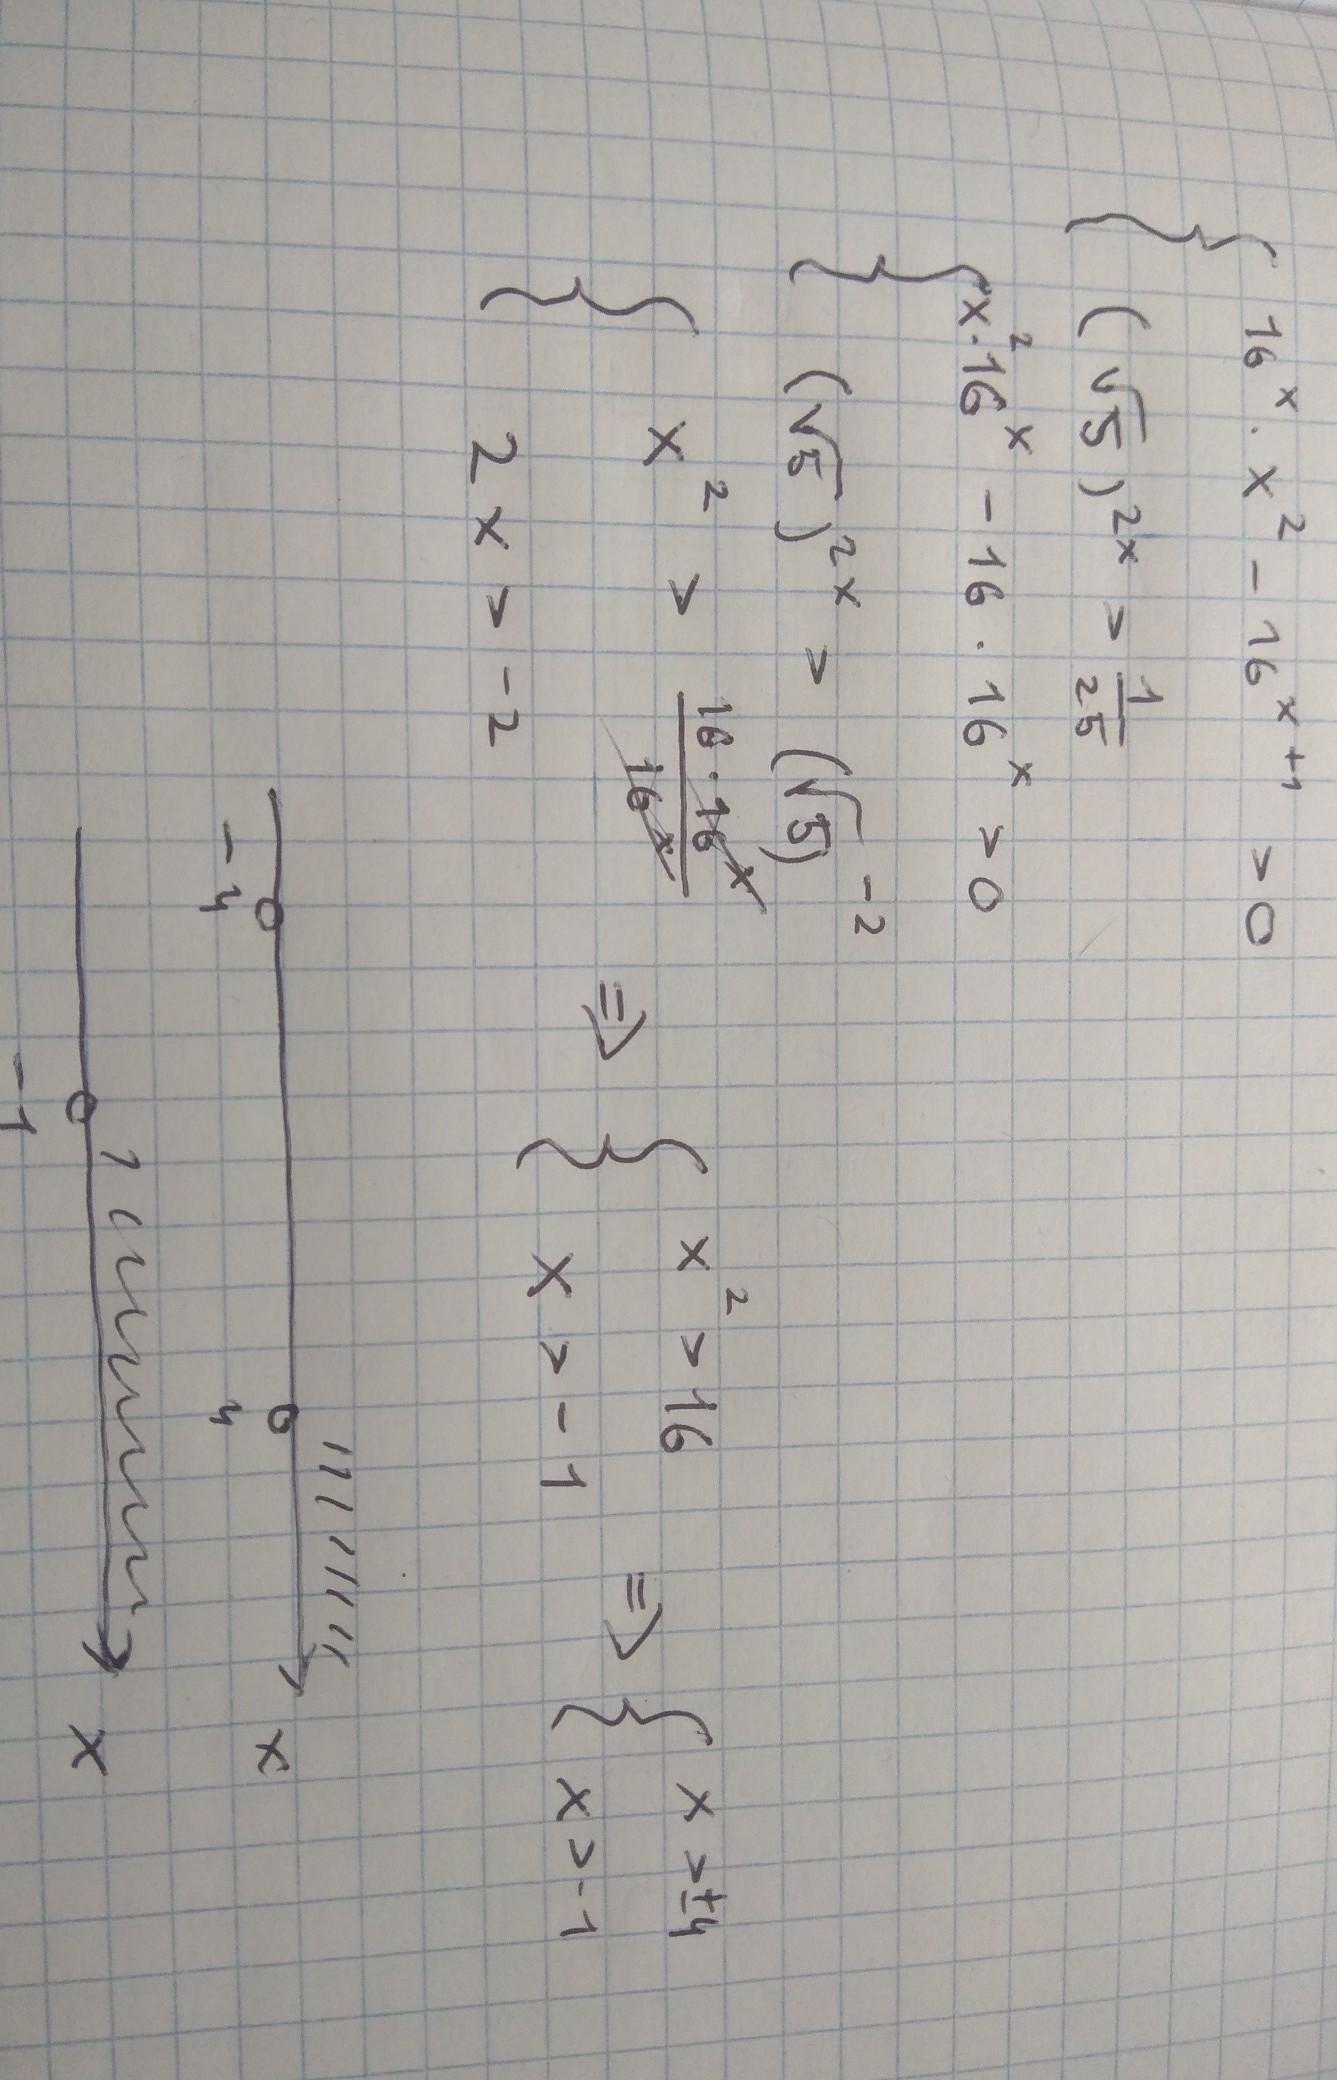 { 16^x · x^2 - 16^{x+1} > 0
(√5)^{2x} > 1/25
{ x^2 · 16^x - 16 · 16^x > 0
(√5)^{2x} > (√5)^{-2}
{ x^2 > (16 · 16^x)/(16^x) => { x^2 > 16 => { x > ±4
2x > -2 x > -1 x > -1
-4 4 x
-1 x